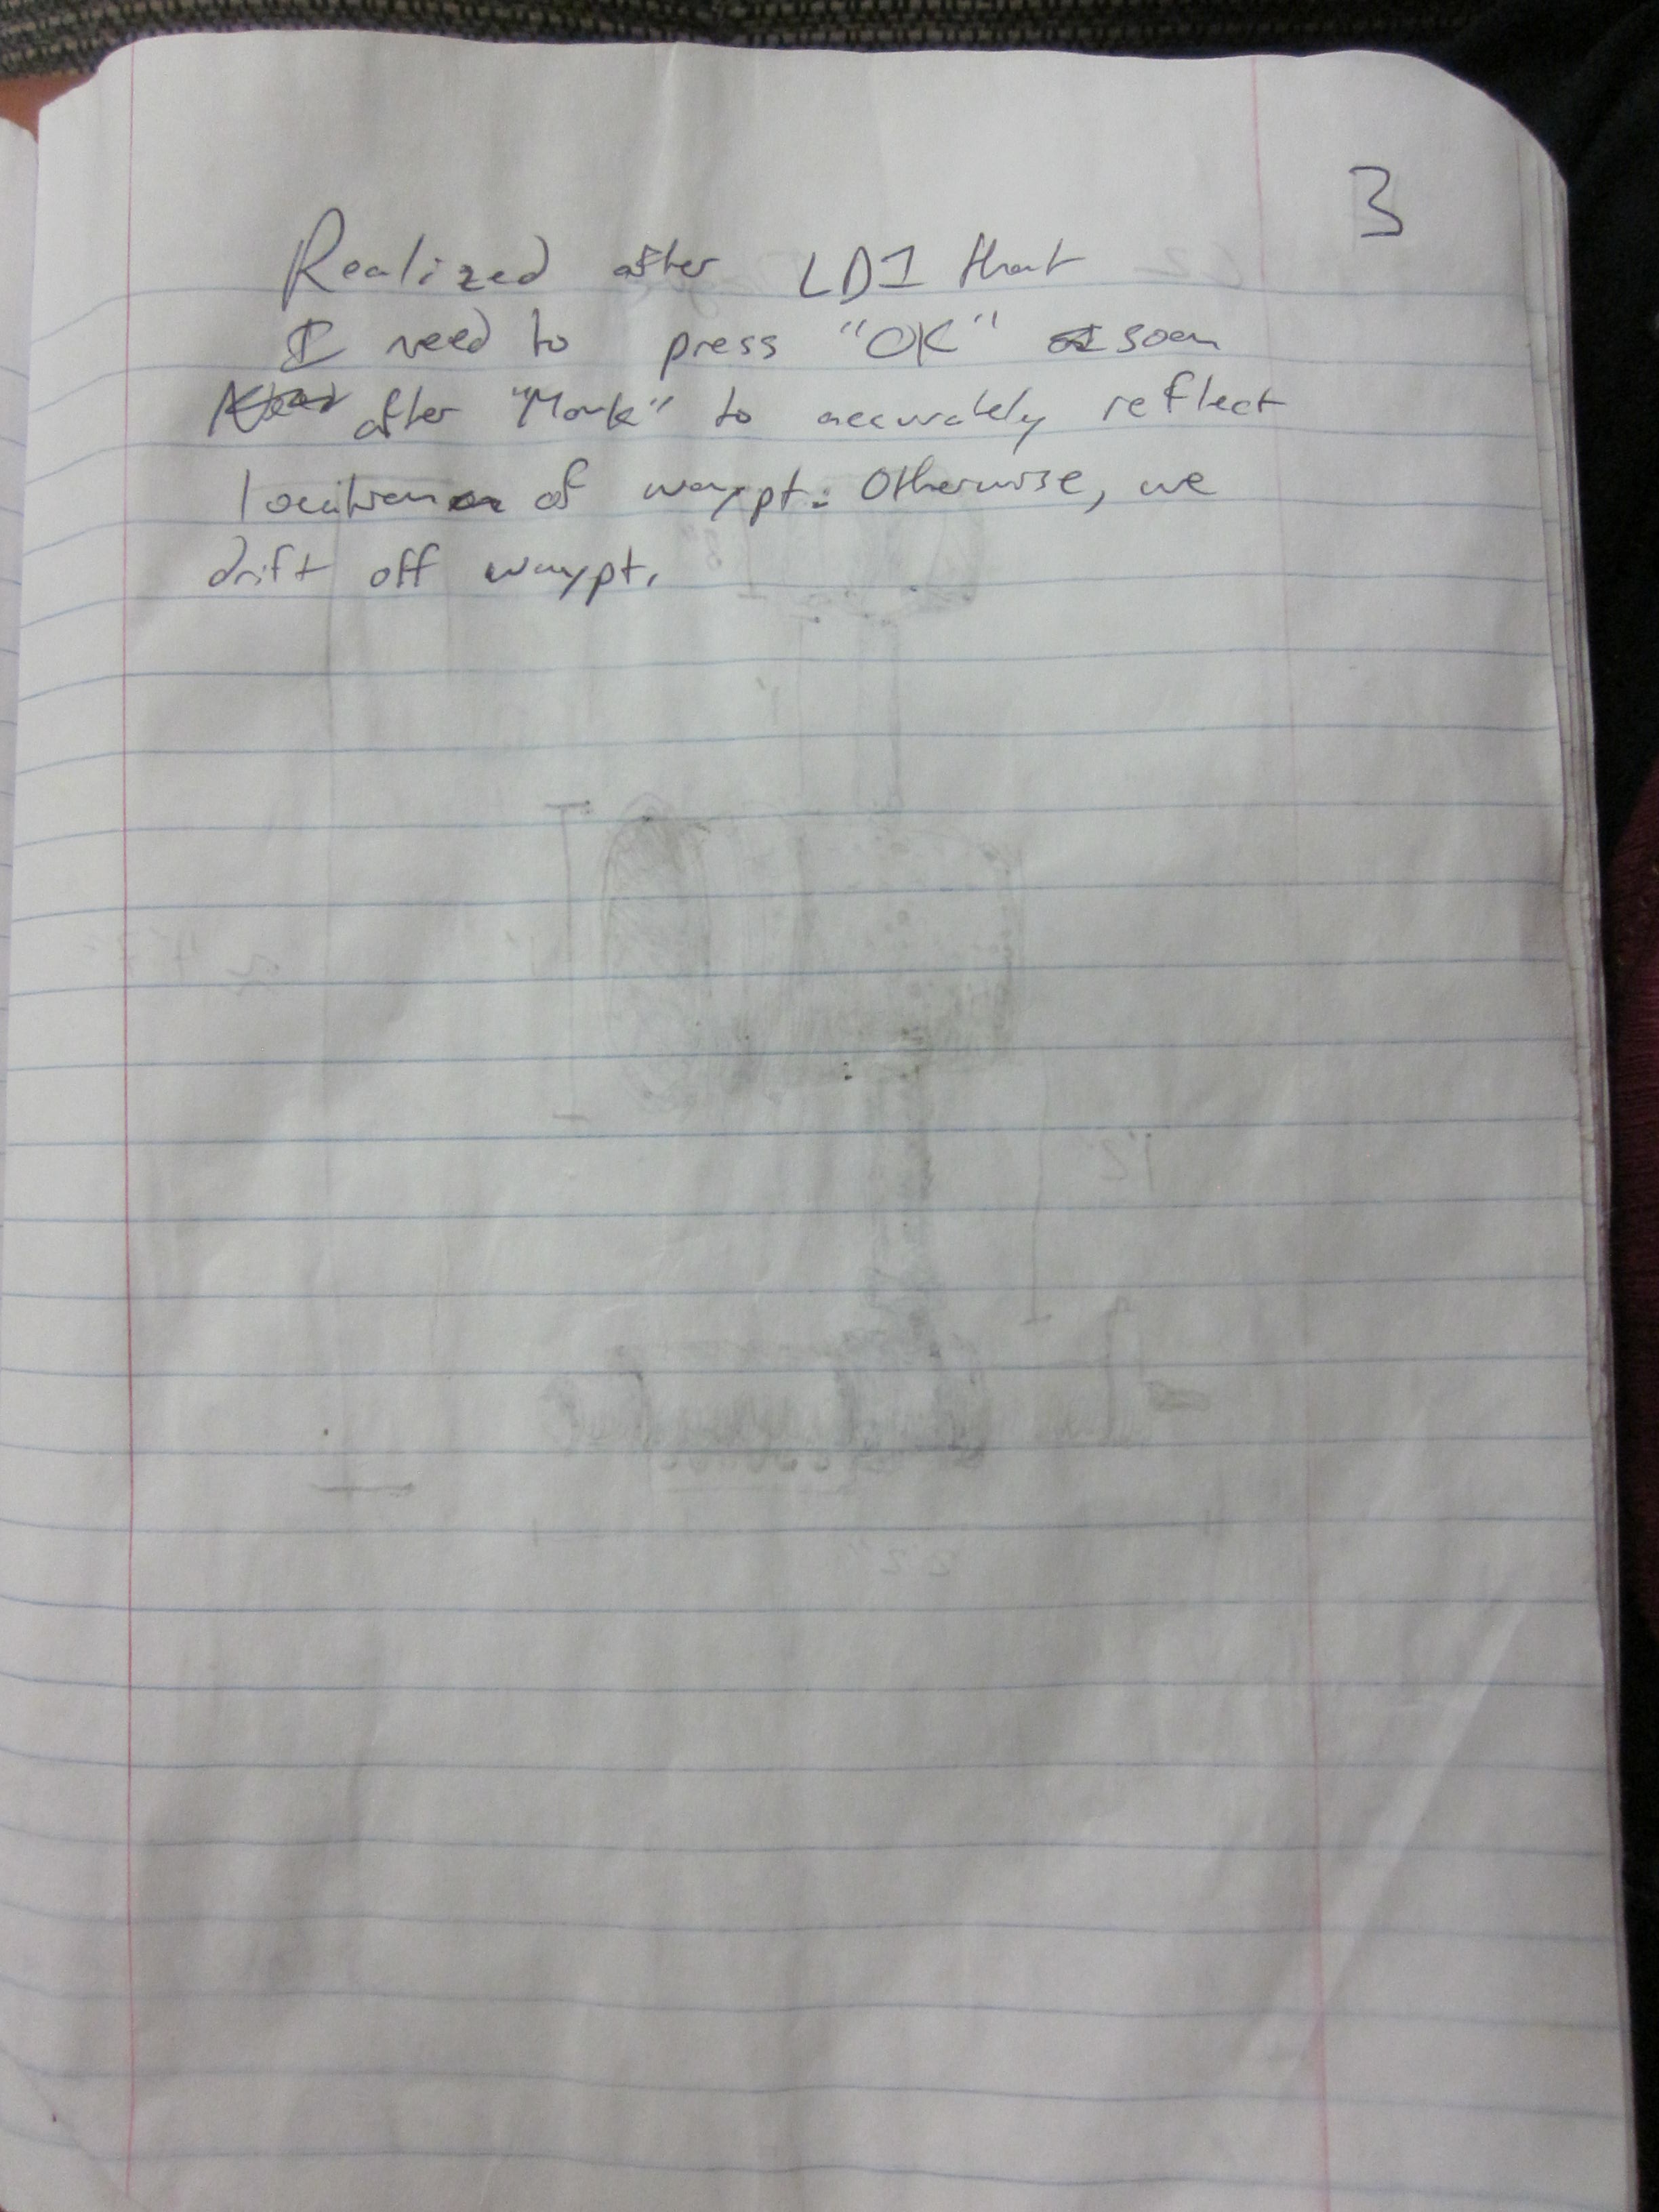 3
Realized after LD1 that
I need to press "OK" soon
after "Mark" to accurately reflect
location of waypt. Otherwise, we
drift off waypt.